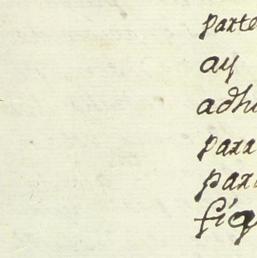 parte
ay
adh
para
para
fig